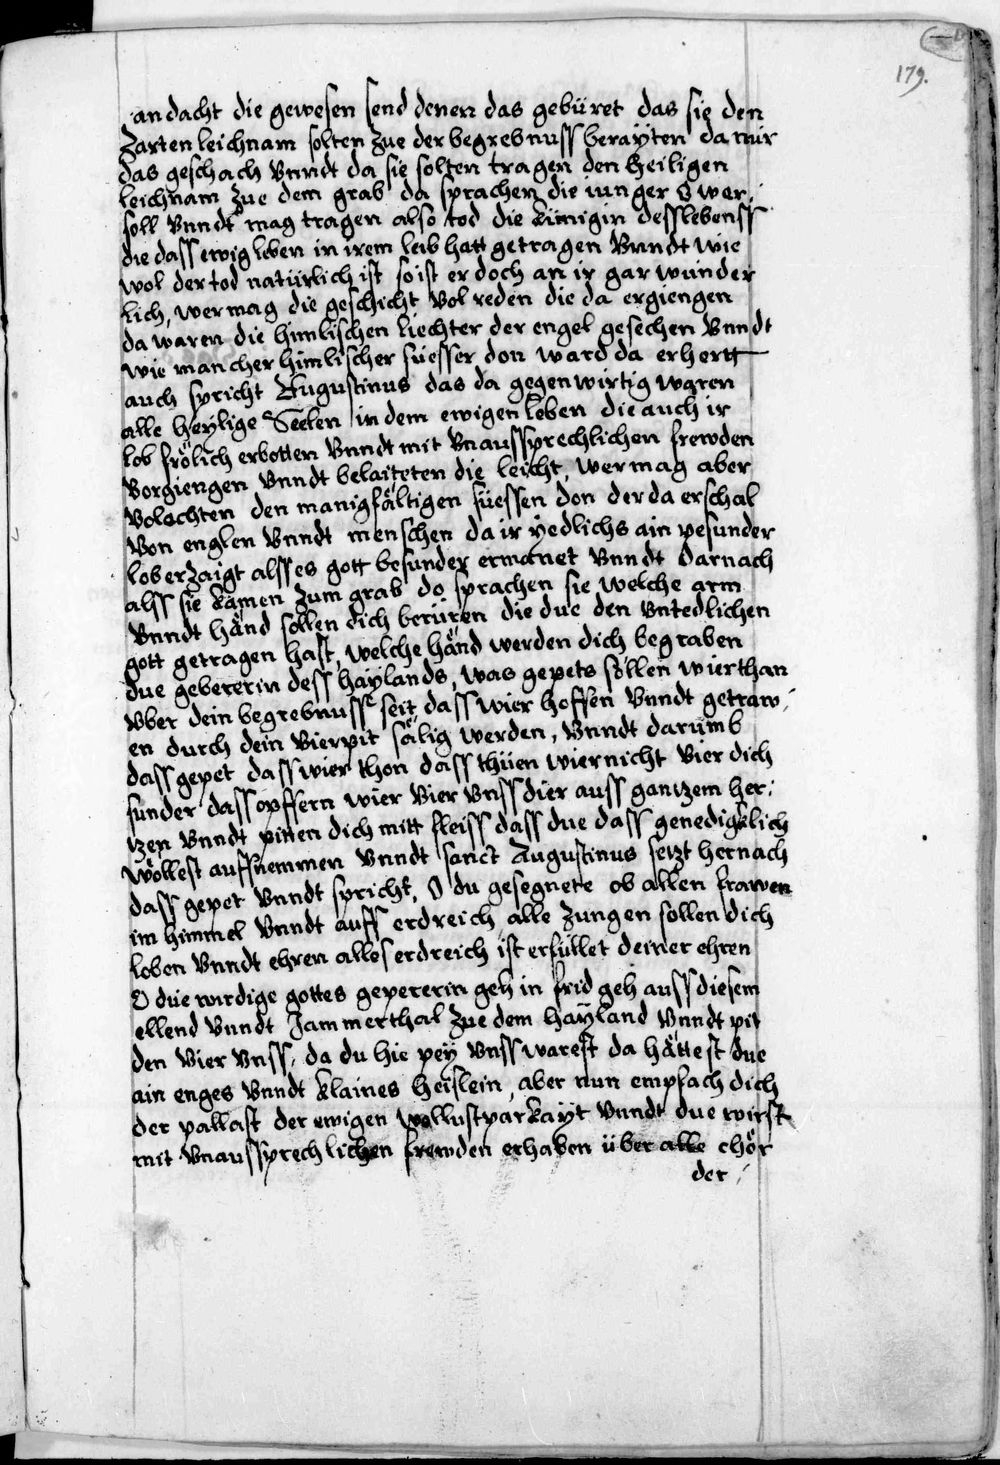 179.
andacht die gewesen send denen das gebüret das sie den
Zarten leichnam solten zue der begrebnuss berayten da nur
das geschach Vnndt da sie solten tragen den Heiligen
leichnam zue dem grab da sprachen die iunger O wer
soll Vnndt mag tragen also tod die kinigin dess lebenss
die dass ewig leben in irem leib hatt getragen Vnndt wie
wol der tod natürlich ist so ist er doch an ir gar wunder
lich, wer mag die geschicht Vol reden die da ergiengen
da waren die himlischen liechter der engel gesechen Vnndt
wie mancher himlischer süesser don ward da erhertt
auch spricht Augustinus das da gegenwirtig waren
alle heylige Seelen in dem ewigen leben die auch ir
lob frölich erbotten Vnndt mit Vnaussprechlichen frewden
Vorgiengen Vnndt belaiteten die leicht, wer mag aber
Volachten den manigfältigen süessen don der da erschal
Von englen Vnndt menschen da ir yedlichs ain pesunder
lob erzaigt alss es gott besunder ermanet Vnndt Darnach
alss sie kamen zum grab do sprachen sie welche arm
Vnndt händ sollen dich berüren die due den Vntedlichen
gott getragen hast, welche händ werden dich begraben
due gebererin dess haylands, was gepets söllen wier than
Vber dein begrebnusse seit dass wier hoffen Vnndt getraw,
en durch dein Vierpit sälig werden, Vnndt darumb
dass gepet dass wier thon dass thüen wier nicht Vier dich
sunder dass opffern wier Vier Vnss dier auss gantzem her,
tzen Vnndt pitten dich mitt fleiss dass due dass genedigklich
wöllest auffnemmen Vnndt sanct Augustinus setzt hernach
dass gepet Vnndt spricht, O du gesegnete ob allen frawen
im himmel Vnndt auff erdreich alle zungen sollen dich
loben Vnndt ehren alles erdreich ist erfüllet deiner ehren
O due wirdige gottes gepererin geh in frid geh auss diesem
ellend Vnndt Jammerthal zue dem hayland Vnndt pit
den Vier Vnss, da du hie pey Vnss warest da hättest due
ain enges Vnndt klaines heislein, aber nun empfach dich
der pallast der ewigen wollustparkayt Vnndt due wirst
mit Vnaussprechlichen frewden erhaben über alle chör
der,